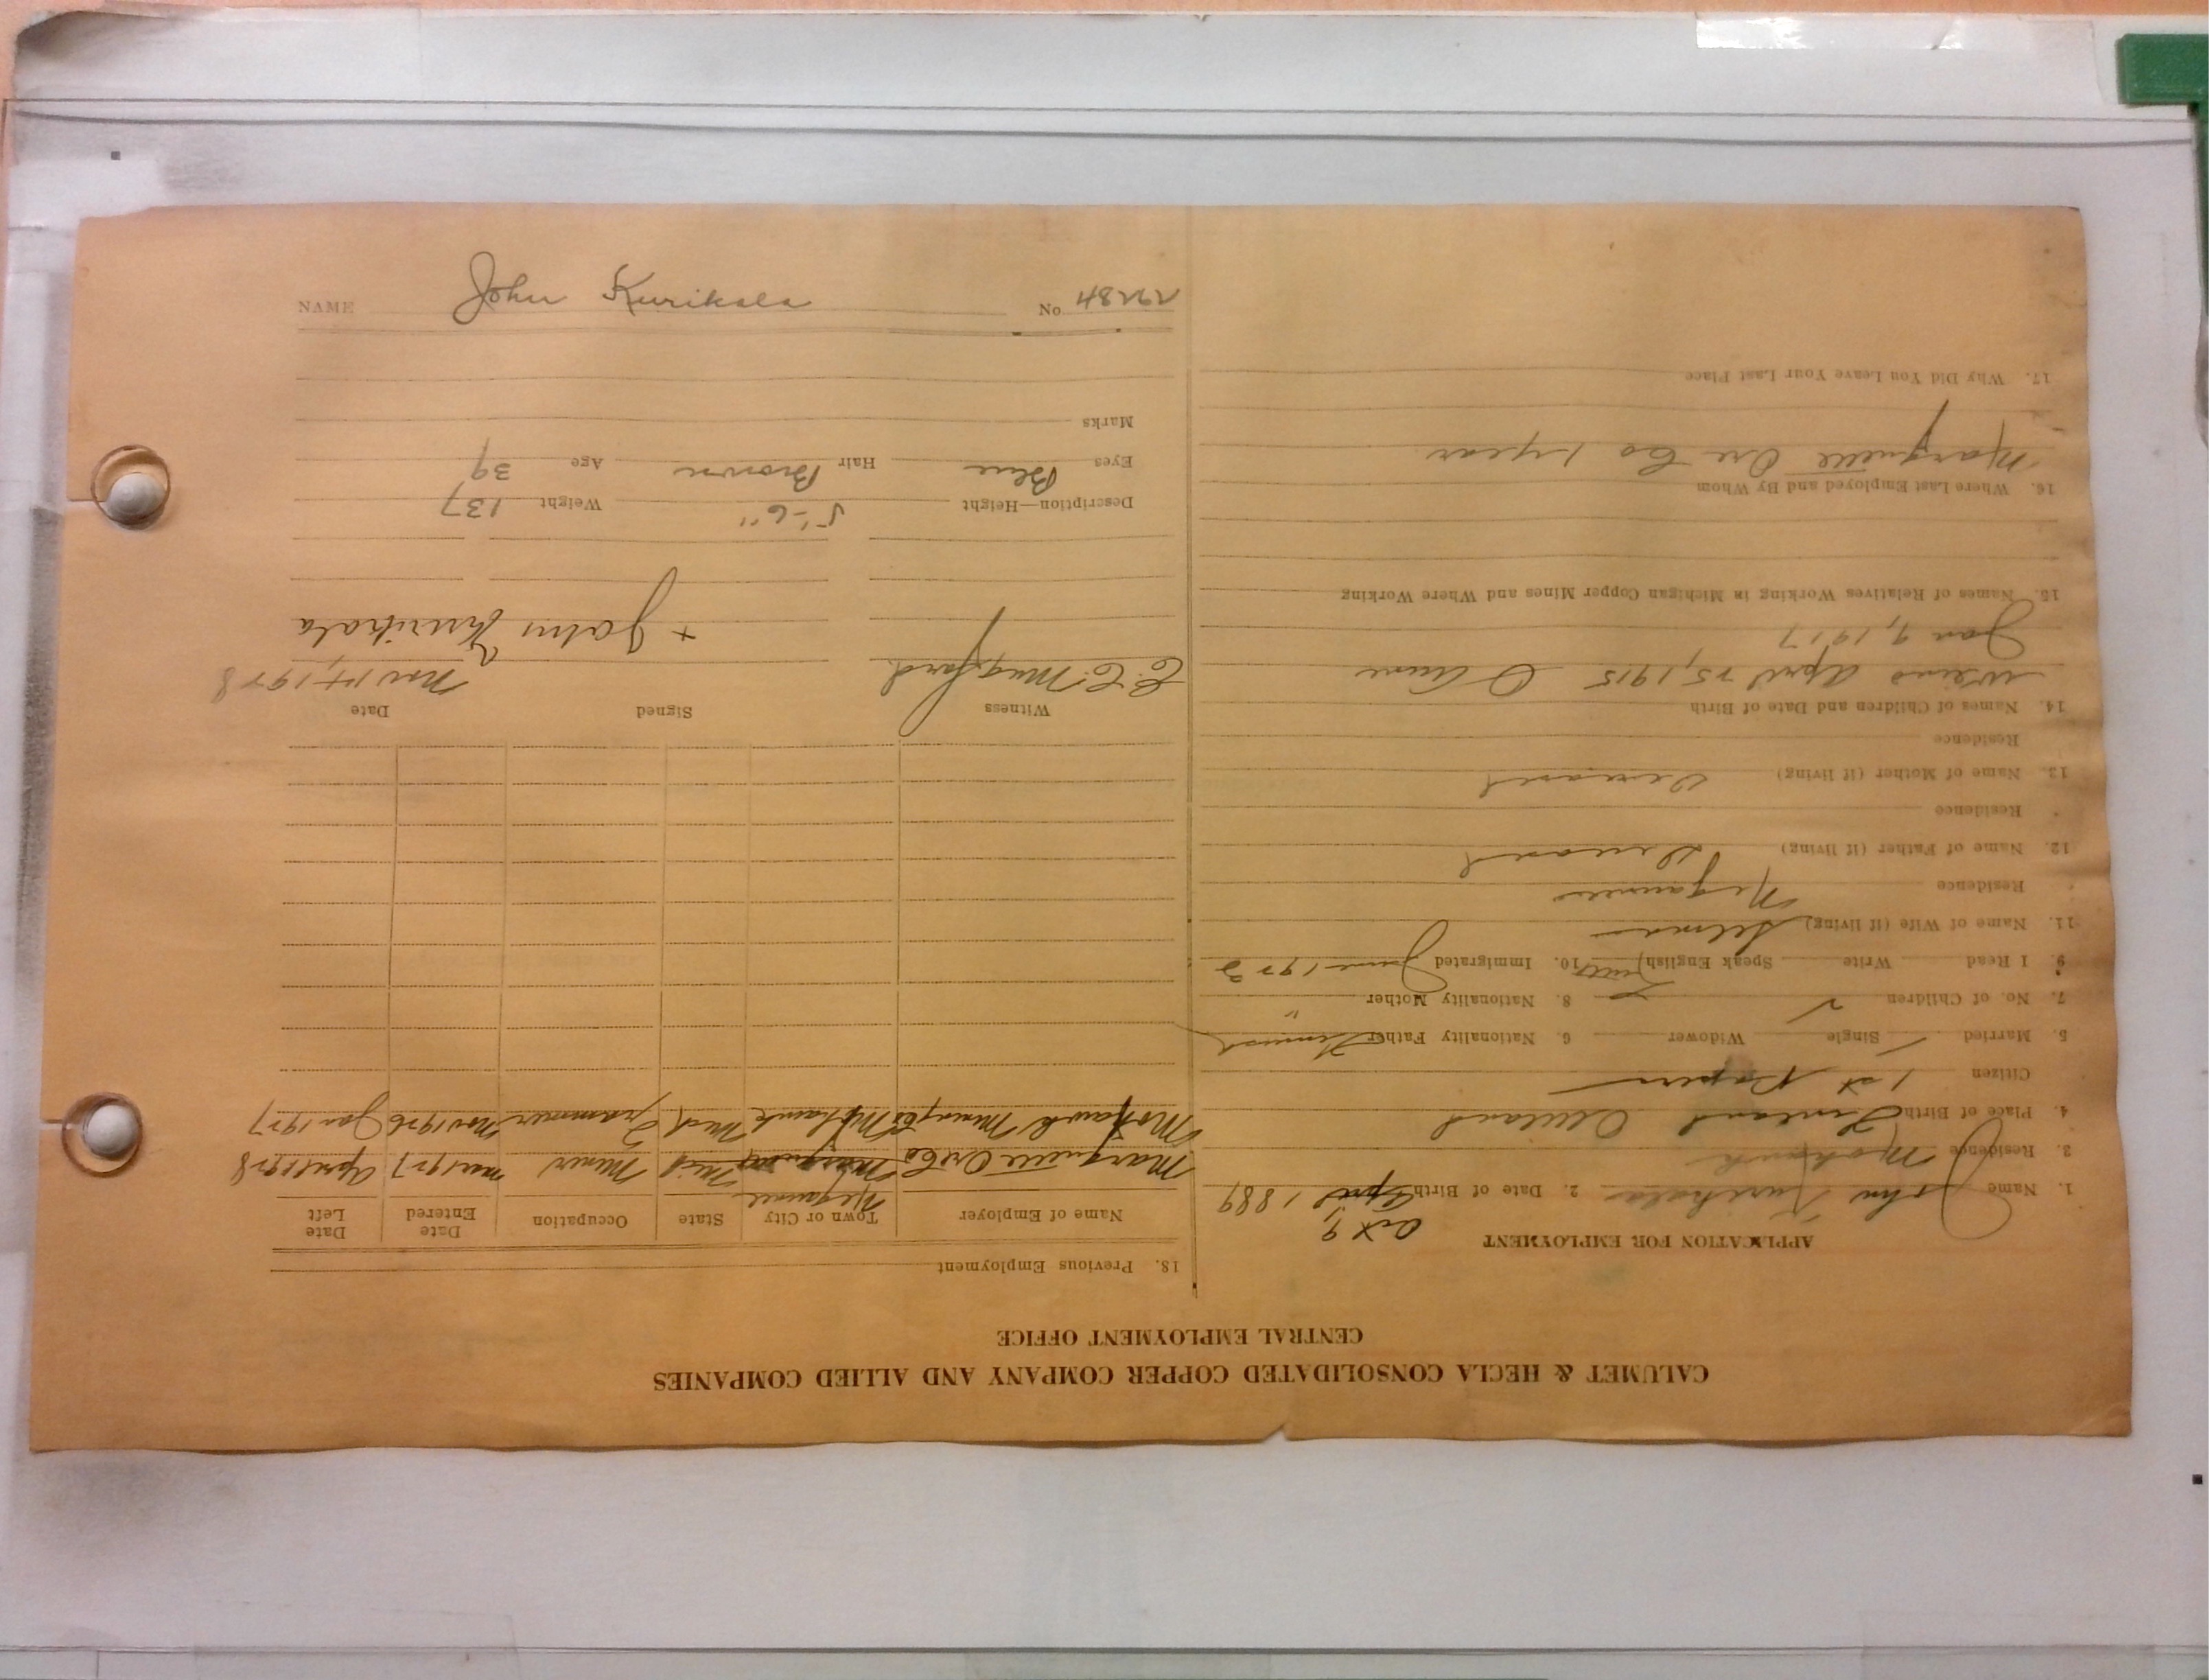 CALUMET & HECLA CONSOLIDATED COPPER COMPANY AND ALLIED COMPANIES
CENTRAL EMPLOYMENT OFFICE
APPLICATION FOR EMPLOYMENT
1. Name John Kurikala 2. Date of Birth April 1889
Oct 9,
3. Residence Mohawk
4. Place of Birth Finland
Citizen 1st Papers
5. Married Single Widower 6. Nationality Father Finnish
7. No. of Children 2 8. Nationality Mother "
9. I Read Write Speak English 10. Immigrated June 1923
11. Name of Wife (if living) Selma
Residence Negaunee
12. Name of Father (if living) Deceased
Residence
13. Name of Mother (if living) Deceased
Residence
14. Names of Children and Date of Birth
April 25, 1915
Jan 9, 1917
15. Names of Relatives Working in Michigan Copper Mines and Where Working
16. Where Last Employed and By Whom
Marquette Ore Co 1 year
17. Why Did You Leave Your Last Place
18. Previous Employment
Name of Employer Town or City State Occupation Date Entered Date Left
Negaunee
Marquette Ore Co Mich Miner 1927 April 1928
Mohawk Mining Co Mohawk Mich Trammer Nov 1926 Jan 1927
Witness Signed Date
Mugford Nov 14, 1928
+ John Kurikala
Description—Height 5'-6" Weight 137
Eyes Blue Hair Brown Age 39
Marks
NAME John Kurikala No.